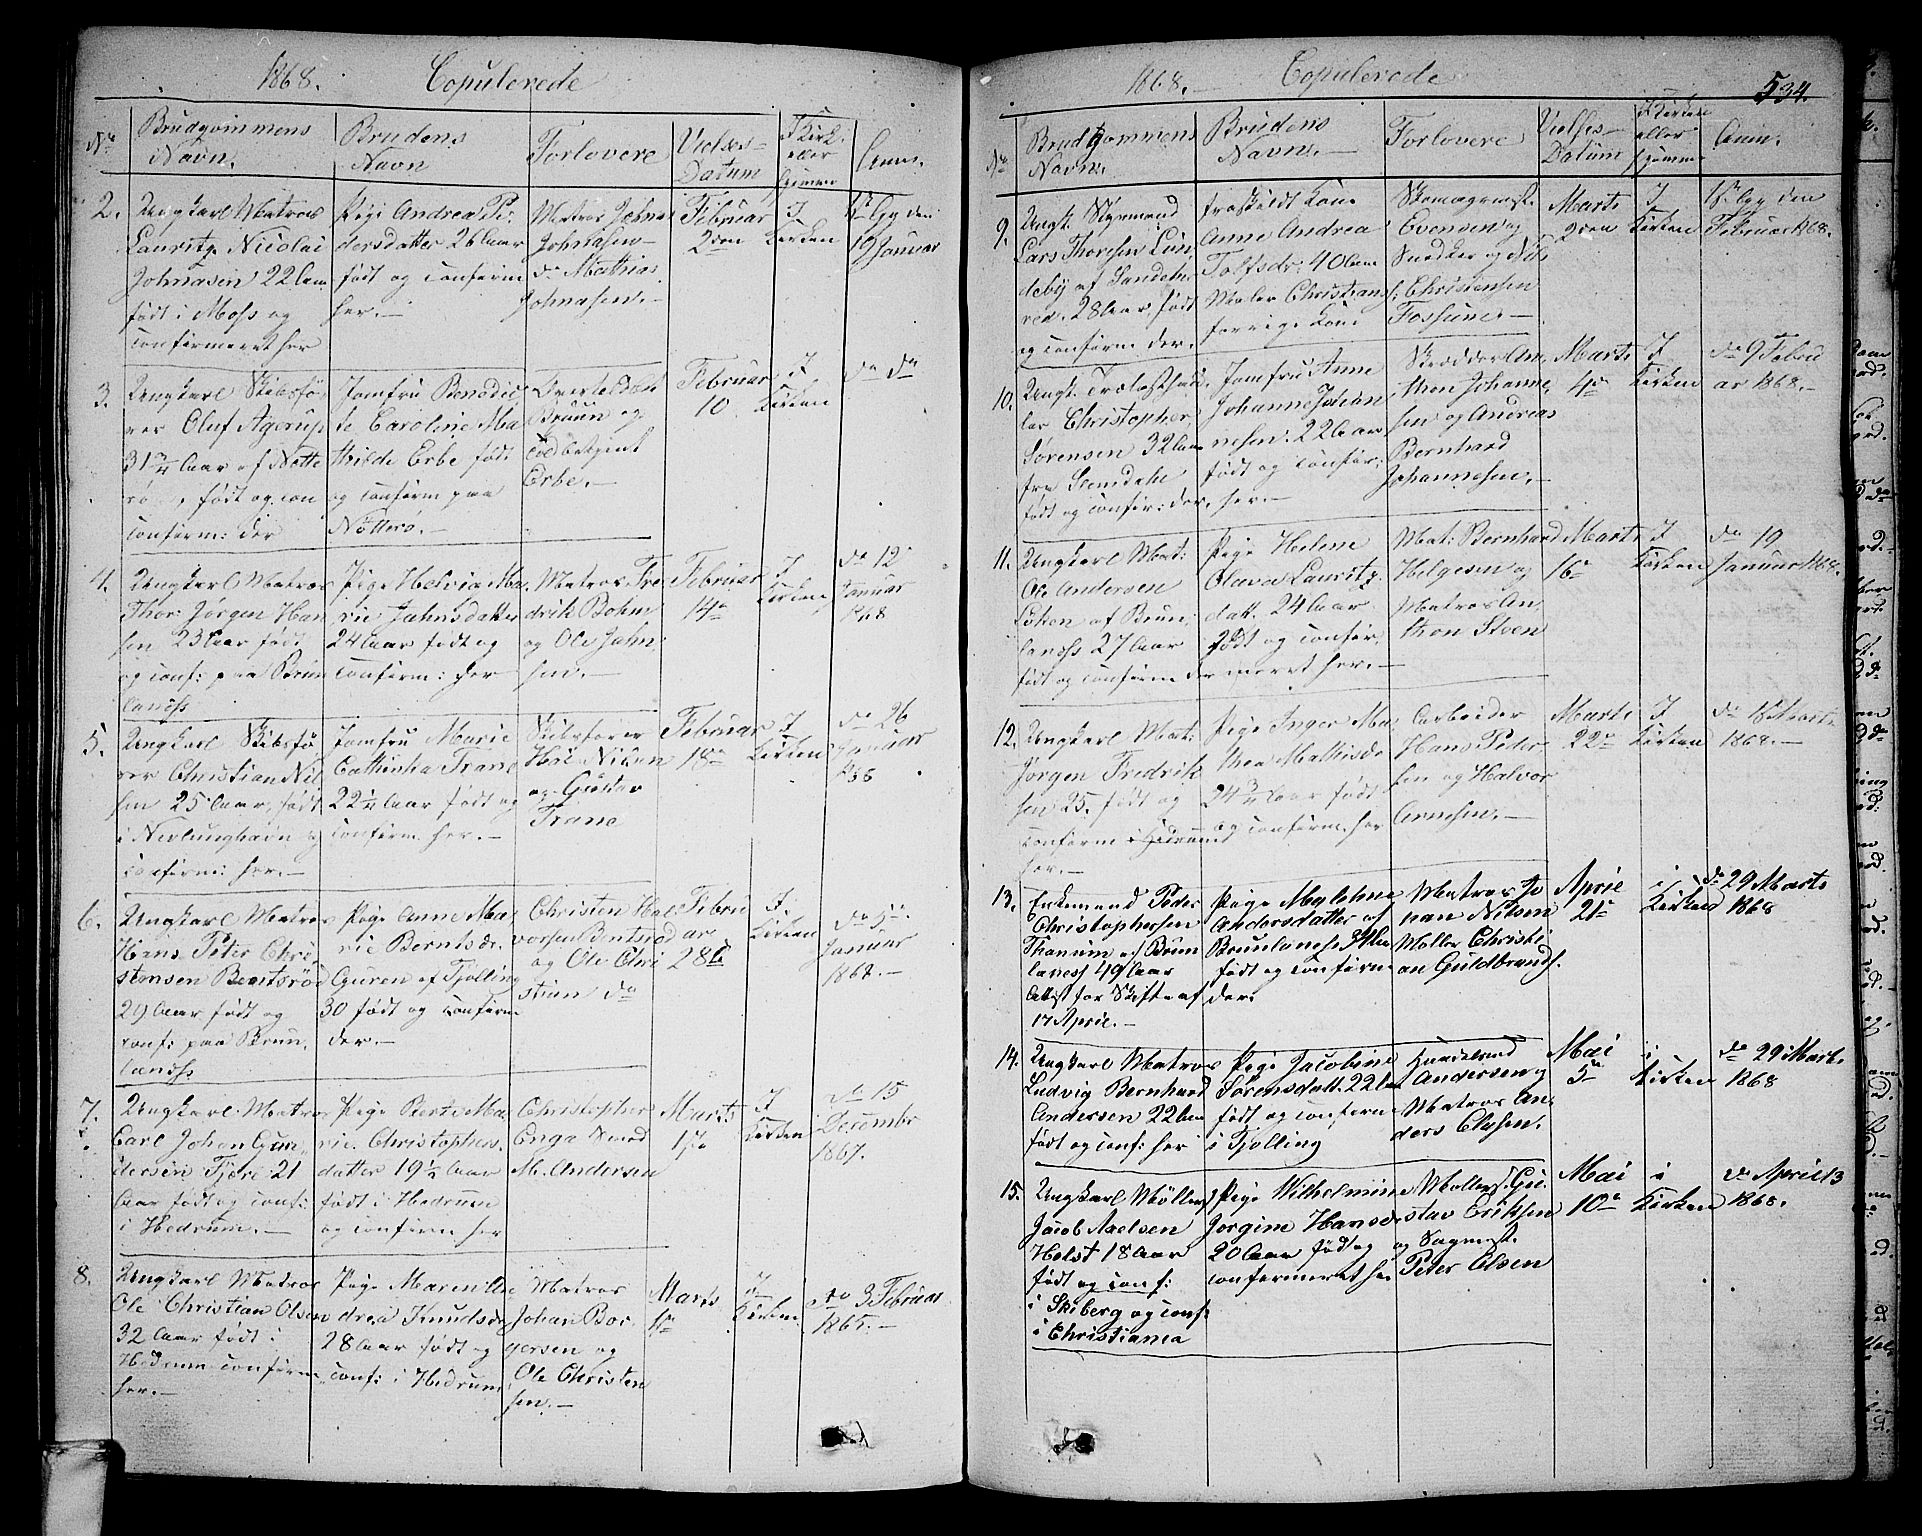 1868. Copulerede
No
Brudgommens
Navn.
Brudens
Navn
Forlovere
Vielses-
Datum
I Kirk.
eller
hjemme
Anm.
2.
Ungkarl Matros
Lauritz Nicolai
Johnasen 22 Aar
født i Moss og
confirmeret her
Pige Andrea Pe-
dersdatter 26 Aar
født og confirm
her.-
Matros Johnas
Johnasen-
do Mathias
Johnasen.-
Februar
2den
I
Kirken
1st Gg den
19 Januar
3.
Ungkarl Skibsfø
rer Oluf Agerup
31 3/4 Aar af Nøtte
rø, født og con
confirm: der
Jomfru Benedic
te Caroline Ma
thilde Erbe født
og confirm paa
Nøtterø.-
Bruun og
Toldbetjent
Erbe.-
Februar
10
I
Kirken
do do
4.
Ungkarl Matros
Thor Jørgen Han
sen 23 Aar født
og conf: paa Brun
lanæs
Pige Helvia Ma
rie Jahnsdatter
24 Aar født og
confirm: her
Matros Fre
drik Bohm
og Ole Jahn
sen.-
Februar
14de
I
Kirken
do 12
Januar
1868
5.
Ungkarl Skibsfø
rer Christian Nil
sen 25 Aar, født
i Nevlunghavn og
confirm: her.-
Jomfru Marie
Cathinka Trane
22 1/4 Aar født og
confirm. her.-
Skibsfører
Nilsen
og Gustav
Trane
Februar
18de
I
Kirken
do 26
Januar
1868
6.
Ungkarl Matros
Hans Peter Chri
stensen Berntsrød
29 Aar født og
conf: paa Brun,
lanæs.
Pige Anne Ma
rie Berntsdr.
Guren af Tjølling
30 født og confirm
der.-
Christen Hal
vorsen Berntsrød
og Ole Chri
stian do
Febru
ar
28de
I.
Kirken
do 5te
Januar
1868.-
7.
Ungkarl Matros
Carl Johan Gun
dersen Fjære 21
Aar født og conf:
i Hedrum.-
Pige Berte Ma
rie Christophers.
datter 19 1/2 Aar
født i Hedrum
og confirm her
Christopher
Enga Smed
M. Andersen
Marts
1ste
I
Kirken
do 15
Decembr
1867.
8.
Ungkarl Matros
Ole Christian Olsen
32 Aar født i
Hedrum confirm
her.-
Pige Maren An
drea Knudsdr
28 Aar født og
conf: i Hedrum
Matros
Johan Bor-
gersen og
Ole Christen
sen.-
Marts
1ste
I
Kirken
do 3 Februar
1868.-
1868.- Copulerede
534.
No
Brudgommens
Navn.
Brudens
Navn.-
Forlovere
Vielses-
Datum
I Kirken
eller
hjemme
Anm.
9.
Ungk. Styrmand
Lars Thoresen Lun
deby af Sandehe
red. 28 Aar, født
og confirm der.
fraskildt Kone
Anne Andrea
Tolfsdr. 40 Aar
Maler Christians
forrige Kone
Skomagermst.
Evensen og
Snedker og Nils
Christensen
Fossum.-
Marts
2den
I
Kirken
1st Gg den
Februar 1868.
10.
Ungk. Trælasthand
ler Christopher
Sørensen 32 Aar
fra Slemdahl
født og confir: der.
Jomfru Anne
Johanne Johan
nesen: 22 Aar
født og confir:
her.-
Skrædder An
thon Johanne
sen og Andreas
Bernhard
Johannesen.-
Marts
4de
I
Kirken
do 9 Febru
ar 1868.-
11.
Ungkarl Mat:
Ole Andersen
Løken af Brun
lanæs 27 Aar
født og confirm der
Pige Helene
Olava Lauritz
datt. 24 Aar
født og confir,
meret her.-
Mat: Bernhard
Helgesen og
Matros An
thon Steen
Marts
16de
I
Kirken
do 19
Januar 1868.
12.
Ungkarl Mat:
Jørgen Fredrik
sen 25. født og
confirm i Hedrum
her.-
Pige Inger Ma
thea Mathisdr
24 3/4 Aar født
og confirm. her
Arbeider
Hans Peter
sen og Halvor
Arnesen.-
Marts
22de
I
Kirken
do 15 Marts
1868.-
13.
Enkemand Peder
Christophersen
Thanum af Brun
lanæs 49 Aar
Attest for Skifte af
17 April.-
Pige Malene
Andersdatter af
Brunlanæs 34 Aar
født og confirm
der.
Matros Jo
han Nilsen
Møller Christi
an Guldbrands.
April
21de
i
Kirken
do 29 Marts
1868
14.
Ungkarl Matros
Ludvig Bernhard
Andersen 22 Aar
født og conf: her
Pige Jacobine
Sørensdatt. 22 Aar
født og confirm
i Tjølling
Andersen og
Matros An
ders Olsen.
Mai
5te
i
Kirken
do 29 Marts
1868
15.
Ungkarl Møllers.
Jacob Axelsen
Holst 18 Aar
født og conf:
i Skiberg og conf:
i Christiania
Pige Wilhelmine
Jørgine Hansdr
20 Aar født og
confirmeret her
Møllers. Gu
stav Eriksen
og Sagmest.
Peter Olsen
Mai
10de
i
Kirken
do April 13
1868.